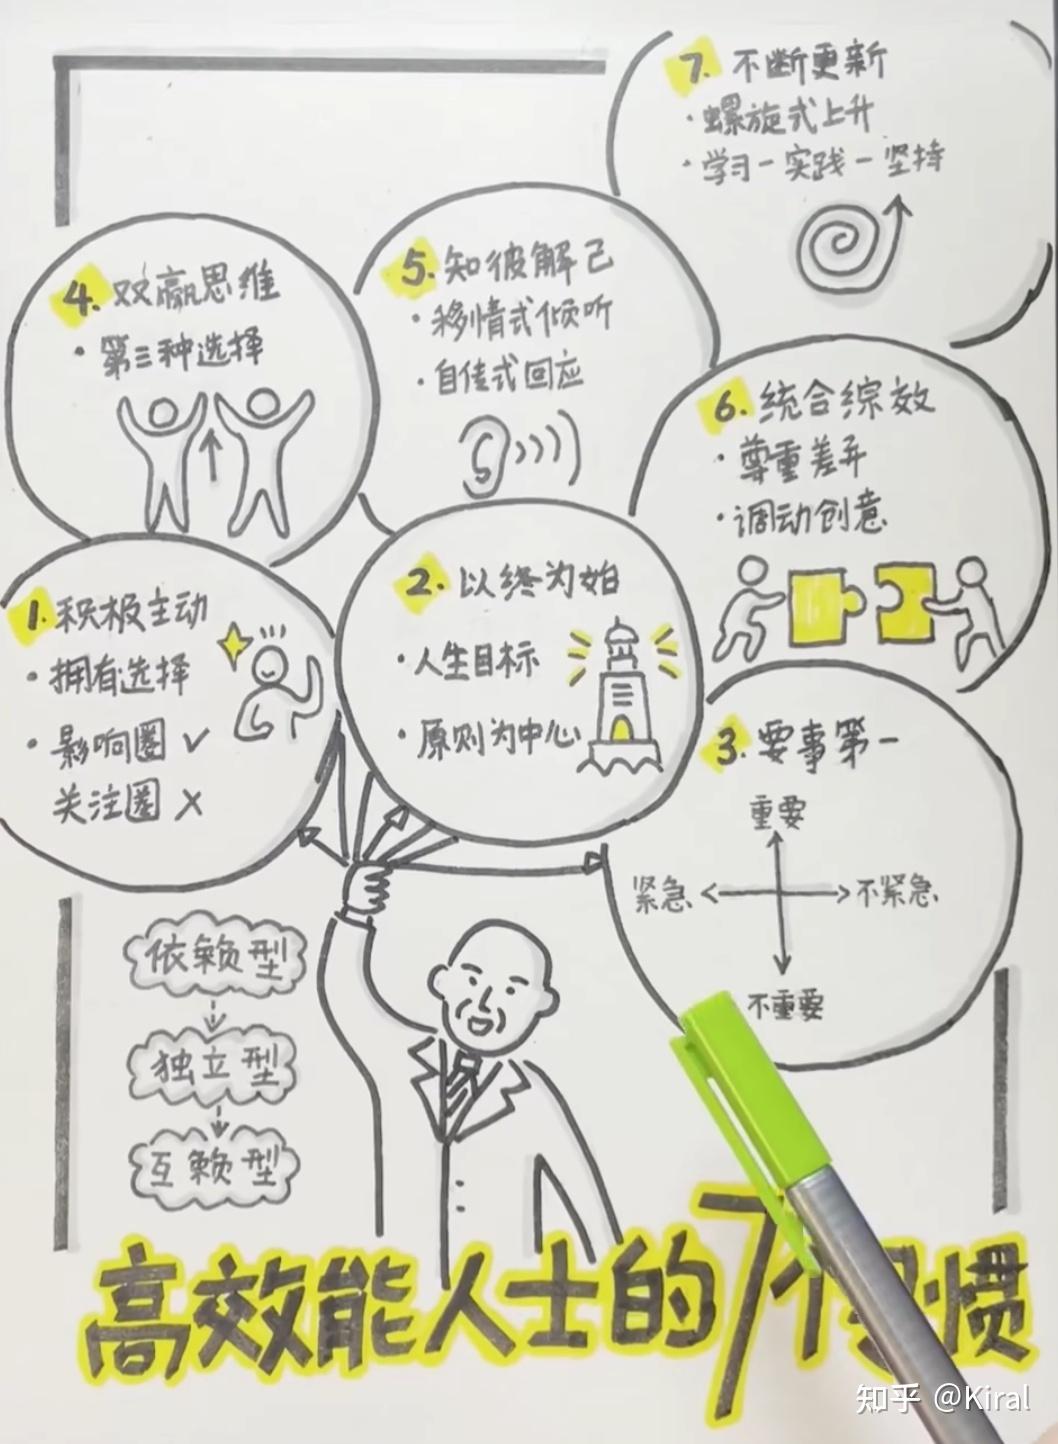 7. 不断更新
· 螺旋式上升
· 学习－实践－坚持
4. 双赢思维
· 第三种选择
5. 知彼解己
· 移情式倾听
· 自传式回应
6. 统合综效
· 尊重差异
· 调动创意
1. 积极主动
· 拥有选择
· 影响圈 ✓
关注圈 ✗
2. 以终为始
· 人生目标
· 原则为中心
3. 要事第一
重要
紧急
不紧急
不重要
依赖型
独立型
互赖型
高效能人士的7个习惯
知乎 @Kiral